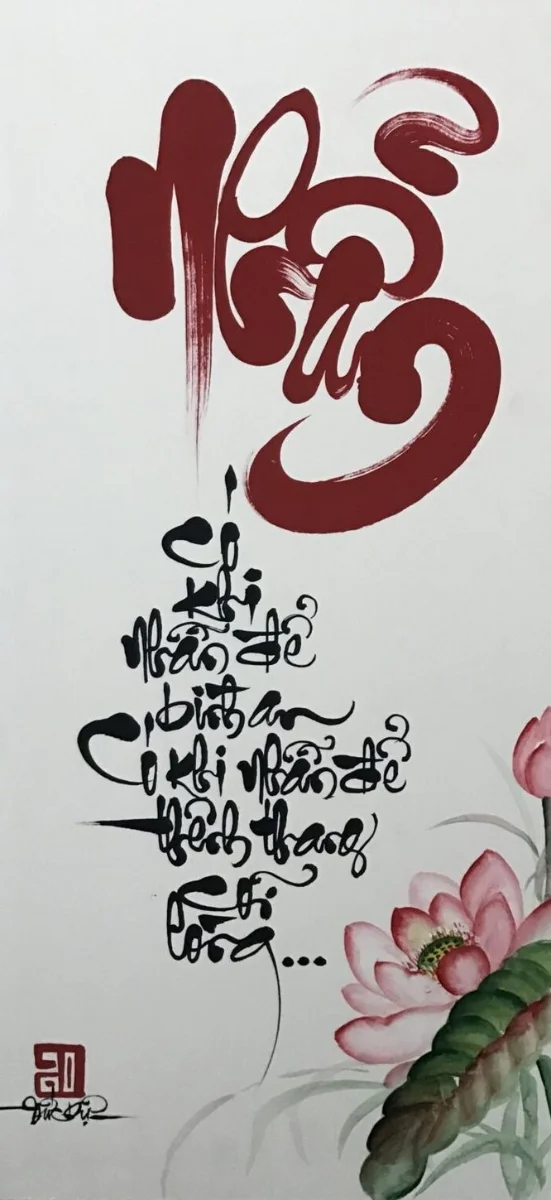 Nhẫn
Có
khi
Nhẫn để
bình an
Có khi Nhẫn để
thênh thang
Cõi
lòng...